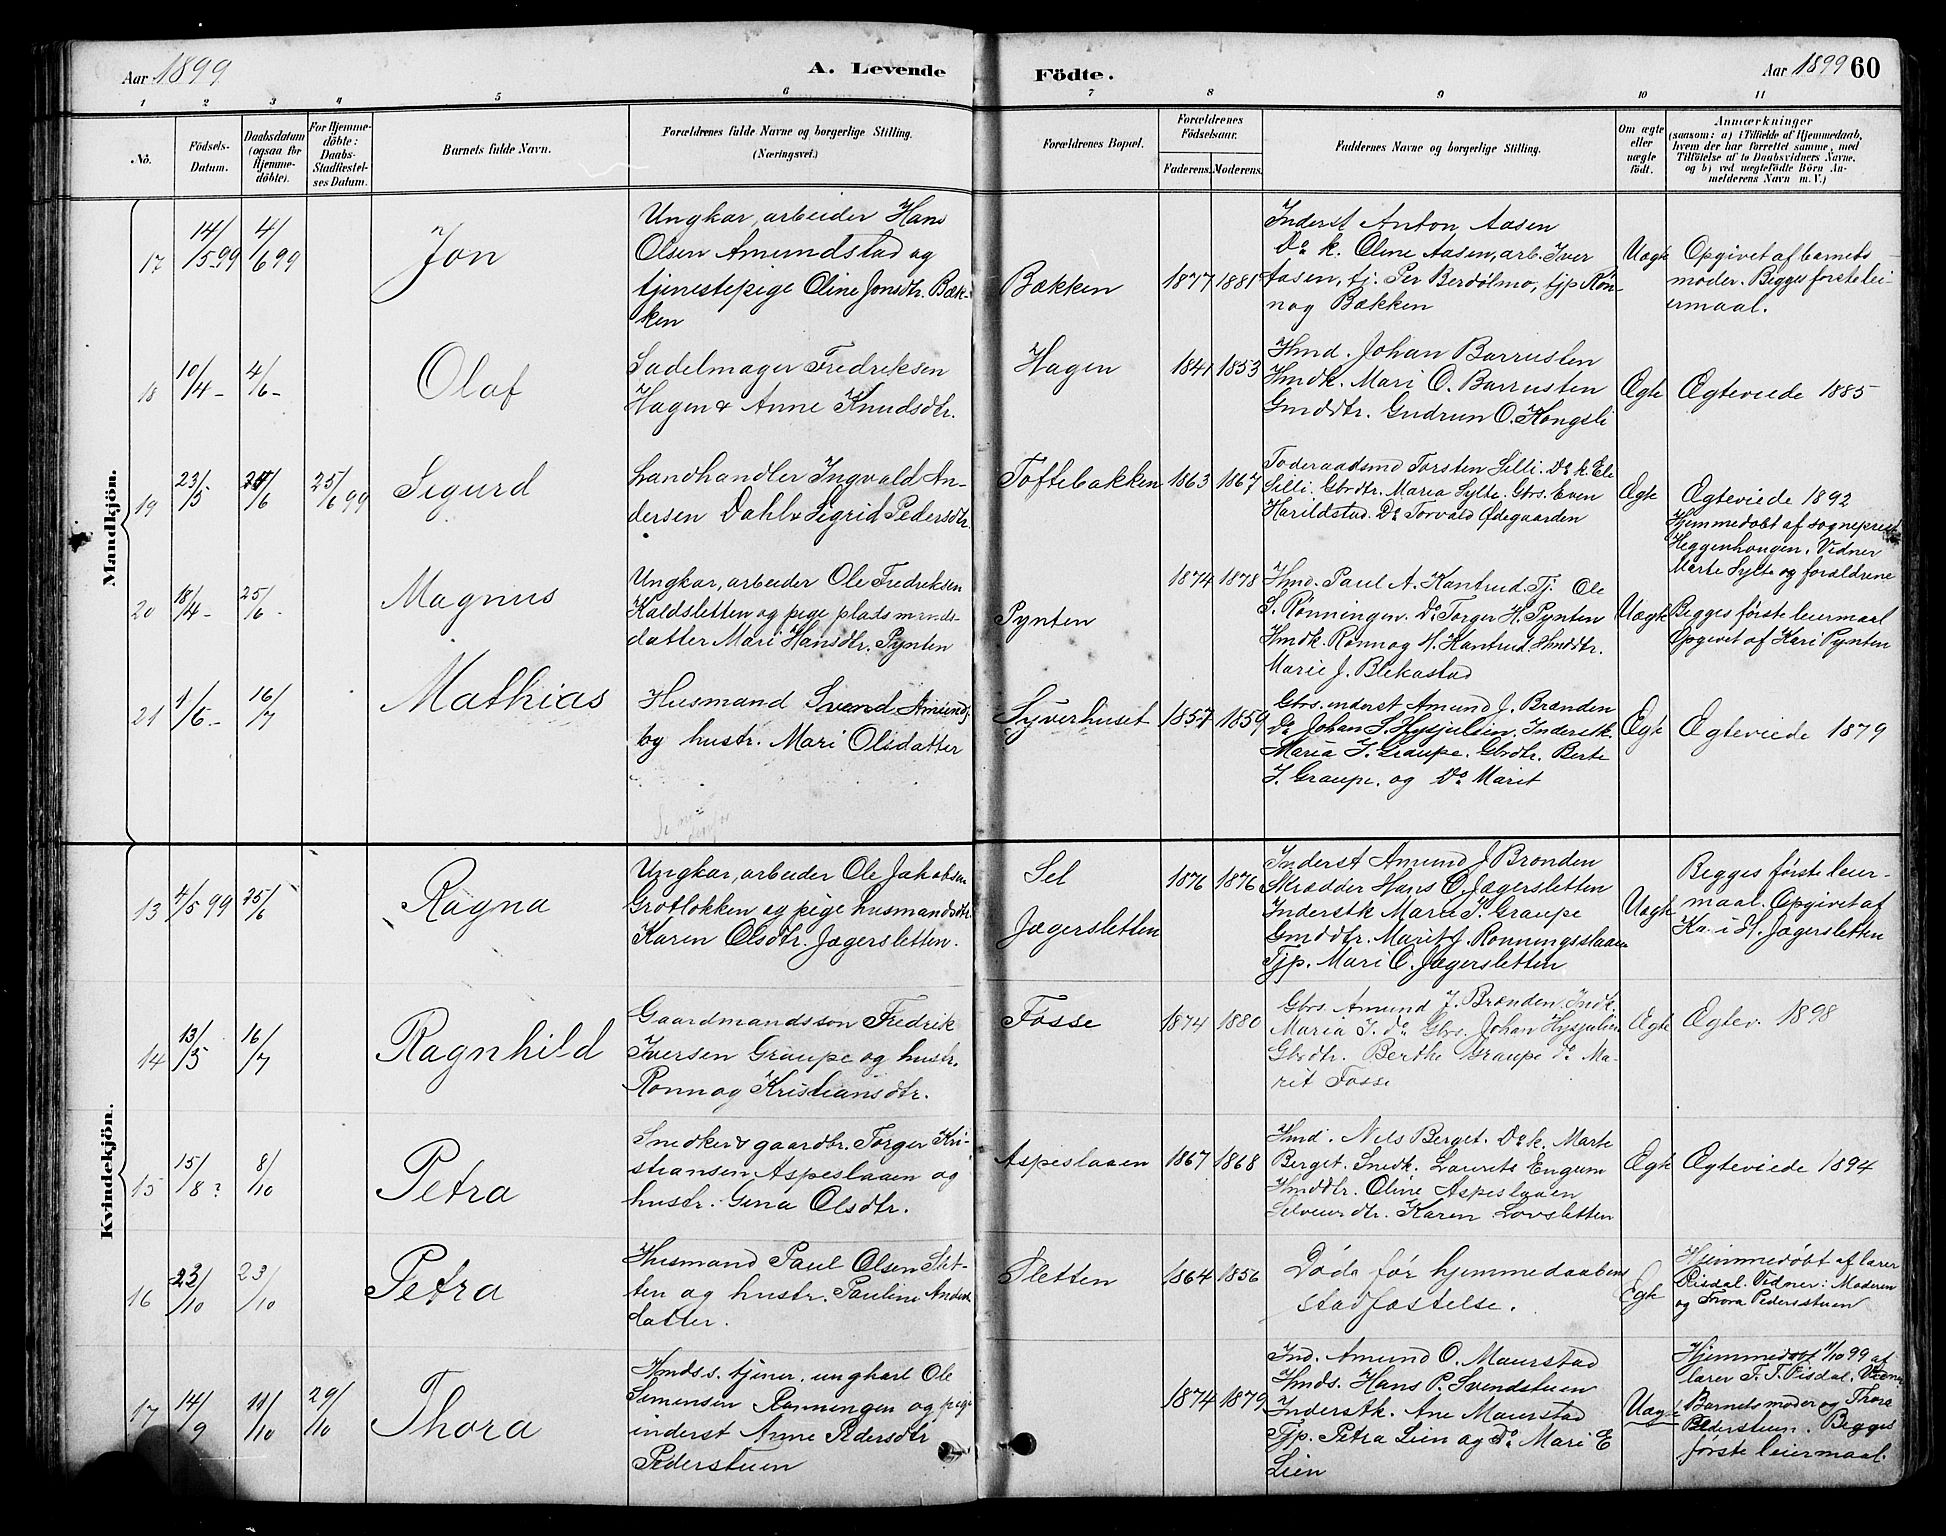 Aar 1899
A. Levende
Födte.
Aar 1899 60
1 2 3 4 5 6 7 8 9 10 11
No.
Födsels-
Datum.
Daabsdatum
(ogsaa for
Hjemme-
döbte).
For Hjemme-
döbte:
Daabs-
Stadfæstel-
ses Datum.
Barnets fulde Navn.
Forældrenes fulde Navne og borgerlige Stilling.
(Næringsvei.)
Forældrenes Bopæl.
Forældrenes
Födselsaar.
Faderens. Moderens.
Faddernes Navne og borgerlige Stilling.
Om ægte
eller
uægte
födt.
Anmærkninger
(saasom: a) i Tilfælde af Hjemmedaab,
hvem der har forrettet samme, med
Tilföielse af to Daabsvidners Navne.
og b) ved uægtefödte Börn An-
melderens Navn m. V.)
Mandkjön.
17
14/5 99
4/6 99
Jon
Ungkar, arbeider Hans
Olsen Amundstad og
tjenestepige Oline Jonsdtr. Bæk-
ken
Bækken
1877 1881
Inderst Anton Aasen
Do k. Oline Aasen, arb. Iver
Aasen, tj. Per Berdølmo, tjp Røn-
nog Bækken
Uægte
Opgivet af barnets
moder. Begges første lei-
ermaal.
18
10/4 -
4/6 -
Olaf
Sadelmager Fredriksen
Hagen & Anne Knudsdtr.
Hagen
1841 1853
Hmd. Johan Barrusten
Hmdk. Mari O. Barrusten
Gmddtr. Gudrun O. Kongsli
Ægte
Ægteviede 1885
19
23/5
24/6
25/6 99
Sigurd
Landhandler Ingvald An-
dersen Dahl & Sigrid Pedersdtr.
Toftebakken
1863 1867
Foderaadsmd Torsten Selli. Do k. Eli
Selli. Gbrdtr. Maria Sylte. Gbrs. Even
Harildstad. Do Torvald Ødegaarden
Ægte
Ægteviede 1892
Hjemmedøbt af sogneprest
Heggenhougen. Vidner
Marte Sylte og forældrene
20
18/4 -
25/6 -
Magnus
Ungkar, arbeider Ole Fredriksen
Kaldsletten og pige pladsmands-
datter Mari Hansdtr. Pynten
Pynten
1874 1878
Hmd. Paul A. Kantrud. Tj. Ole
S. Rønningen. Do Torger H. Pynten
Hmdk. Rønnog H. Kantrud. Hmddtr.
Marie J. Blekastad
Uægte
Begges første leiermaal
Opgivet af Kari Pynten
21
1/6 -
16/7
Mathias
Husmand Svend Amunds.
og hustr. Mari Olsdatter
Syverhuset
1857 1859
Gbrs. inderst Amund J. Brænden
Do Johan S. Hysjulien. Inderstk.
Maria J. Graupe. Gbrdtr. Berte
J. Graupe. og Do Marit
Ægte
Ægteviede 1879
Kvindekjön.
13
4/5 99
25/6
Ragna
Ungkar, arbeider Ole Jakobsen
Grotlokken og pige husmandsdtr.
Karen Olsdtr. Jægersletten.
Sel
Jægersletten
1876 1876
Inderst Amund J. Brønden
Skrædder Hans O. Jægersletten
Inderstk Maria J. Graupe
Gmddtr. Marit J. Rønningsslaaen
Tjp. Mari O. Jægersletten
Uægte
Begges første leier-
maal. Opgivet af
Kari H. Jægersletten
14
13/5
16/7
Ragnhild
Gaardmandssøn Fredrik
Iversen Graupe og hustr.
Rønnog Kristiansdtr.
Fosse
1874 1880
Gbrs. Amund J. Brænden. Indk.
Maria J. do Gbrs. Johan Hysjulien
Gbrdtr. Berthe Graupe do Ma-
rit Fosse
Ægte
Ægtev. 1898
15
15/8 ?
8/10
Petra
Snedker & gaardbr. Torger Kri-
stiansen Aspeslaaen og
hustr. Gina Olsdtr.
Aspeslaaen
1867 1868
Hmd. Nils Berget. Do k. Marte
Berget. Snedk. Laurits Engum
Hmddtr. Oline Aspeslaaen
Selveierdtr. Karen Lovsletten
Ægte
Ægteviede 1894
16
23/10
23/10
Petra
Husmand Paul Olsen Slet-
ten og hustr. Pauline Anders
datter.
Sletten
1864 1856
Døde før hjemmedaabens
stadfæstelse.
Ægte
Hjemmedøbt af lærer
Risdal. Vidner: Moderen
og Thora Pedersstuen
17
14/9
11/10
29/10
Thora
Hmdss. tjener, ungkarl Ole
Simensen Rønningen og pige
inderst Anne Pedersdtr
Pederstuen
1874 1879
Ind. Amund O. Maurstad
Hmds. Hans P. Svendstuen
Inderstk. Ane Maurstad
Tjp. Petra Lien og Do Mari E
Lien
Uægte
Hjemmedøbt 11/10 99 af
lærer T. T. Risdal. Vidner
Barnets moder og Thora
Pederstuen. Begges
første leiermaal.